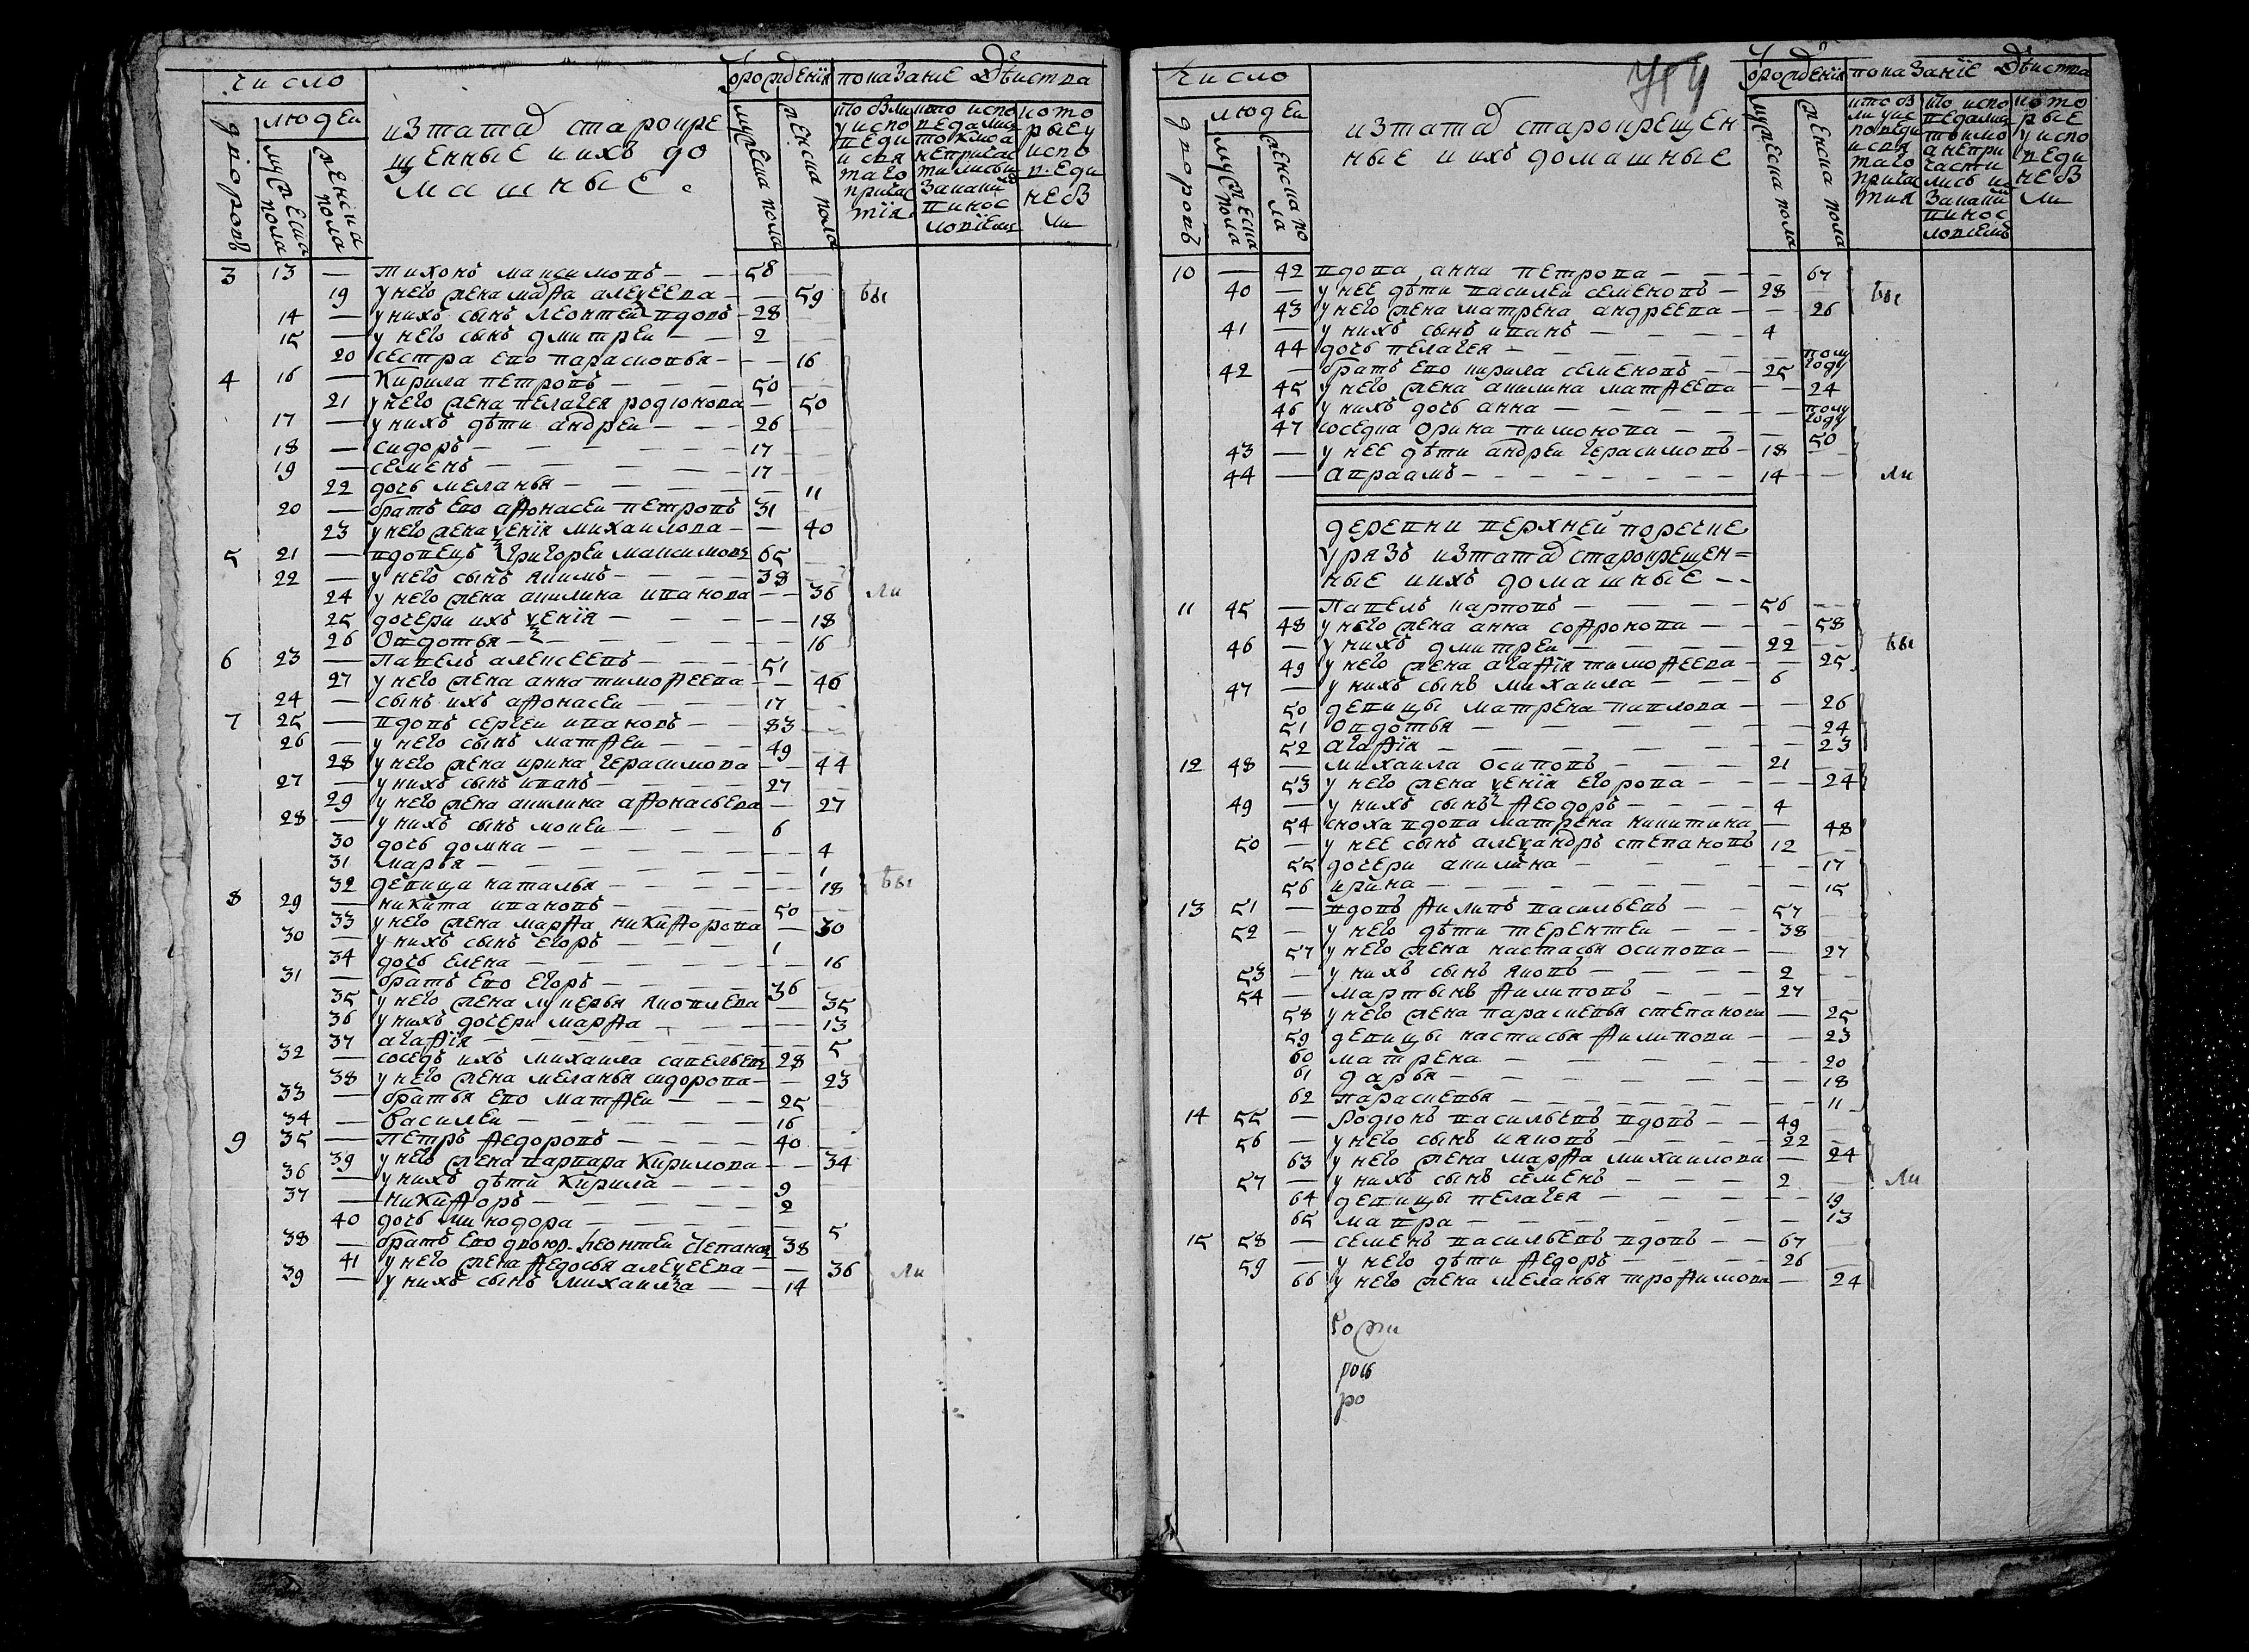 число
людей
дворовъ
мужеска пола
женска пола
изтатар старокре
щенные иихъ до
машные.
ѿрождения
мужеска пола
женска пола
показание действа
3 13 — тихонъ максимовъ — — 58
19 у него жена марфа алеѯеева — — 59 бы
14 — у нихъ сынъ леонтей вдовъ — 28
15 — у него сынъ дмитреи — — 2
20 сестра ево парасковья — — 16
4 16 — Кирила петровъ — — — 50
21 у него жена пелагея родионова — 50
17 — у нихъ дѣти андреи — — — 26
18 — сидоръ — — — — — 17
19 — семенъ — — — — — 17
22 дочь меланья — — — — — 11
20 — братъ ево афонасеи петровъ 31
23 у него жена ѯения михаилова — — 40
5 21 — вдовецъ григореи максимовъ 65
22 — у него сынъ якимъ — — — — 38
24 у него жена акилина иванова — — 36 ли
25 дочери ихъ ѯения — — — — — 18
26 Овдотья — — — — — 16
6 23 — павелъ алексеевъ — — — 51
27 у него жена анна тимофеева — — 46
24 — сынъ ихъ афонасеи — — — 17
7 25 — вдовъ сергеи ивановъ — — 83
26 — у него сынъ матфеи — — — 49
28 у него жена ирина герасимова — — 44
27 — у нихъ сынъ иванъ — — — — 27
29 у него жена акилина афонасьева — 27
28 — у нихъ сынъ мокеи — — — 6
30 дочь домна — — — — — 4
31 марья — — — — — 1
32 девица наталья — — — — — 18 бы
8 29 — никита ивановъ — — — — 50
33 у него жена марфа никифорова — 30
30 — у нихъ сынъ егоръ — — — 1
34 дочь елена — — — — — 16
31 — братъ ево егоръ — — — — 36
35 у него жена лукерья яковлева — 35
36 у нихъ дочери марфа — — — — 13
37 агафия — — — — — 5
32 — соседъ ихъ михаила савельевъ 28
38 у него жена меланья сидорова — — 23
33 — братья ево матфеи — — — 25
34 — Василеи — — — — — 16
9 35 — петръ федоровъ — — — — 40
39 у него жена варвара Кирилова — — 34
36 — у нихъ дѣти Кирила — — — 9
37 — никифоръ — — — — — 2
40 дочь минодора — — — — — 5
38 — братъ ево двоюр. леонтеи степанов 38
41 у него жена федосья алеѯеева — — 36 ли
39 — у нихъ сынъ михаила — — 14
число
людей
дворовъ
мужеска пола
женска пола
изтатар старокрещен
ные иихъ домашные
ѿрождения
мужеска пола
женска пола
показание действа
10 — 42 вдова анна петрова — — — — 67
40 — у нее дѣти василеи семеновъ — 28 бы
43 у него жена матрена андреева — — 26
41 — у нихъ сынъ иванъ — — — — 4
44 дочь пелагея — — — — — — полу году
42 — братъ ево кирила семеновъ — — 25
45 у него жена акилина матфеева — — 24
46 у нихъ дочь анна — — — — — — полу году
47 соседка орина тимонова — — — — 50
43 — у нее дѣти андреи герасимовъ — 18
44 — авраамъ — — — — — — 14 — ли
деревни верхней поречке
урязъ изтатар старокрещен=
ные иихъ домашные — —
11 45 — павелъ карповъ — — — — 56
48 у него жена анна софронова — — — 58
46 — у нихъ дмитреи — — — — 22 бы
49 у него жена агафия тимофеева — — 25
47 — у нихъ сынъ михаила — — — 6
50 девицы матрена павлова — — 26
51 Овдотья — — — — — — 24
52 агафия — — — — — — 23
12 48 — михаила осиповъ — — — — 21
53 у него жена ѯения егорова — — — — 24
49 — у нихъ сынъ феодоръ — — — — 4
54 сноха вдова матрена никитина — 48
50 — у нее сынъ алеѯандръ степановъ 12
55 дочери акилина — — — — — 17
56 ирина — — — — — — — 15
13 51 — вдовъ филипъ васильевъ — — 57
52 — у него дѣти терентеи — — — 38
57 у него жена настасья осипова — — 27
53 — у нихъ сынъ яковъ — — — — 2
54 — мартынъ филиповъ — — — 27
58 у него жена парасковья степанова — 25
59 девицы настасья филипова — — 23
60 матрена — — — — — — 20
61 дарья — — — — — — — 18
62 парасковья — — — — — — 11
14 55 — Родионъ васильевъ вдовъ — — 49
56 — у него сынъ иаковъ — — — — 22
63 у него жена марфа михаилова — 24
57 — у нихъ сынъ семенъ — — — — 2 — ли
64 девицы пелагея — — — — — 19
65 мавра — — — — — — 13
15 58 — семенъ васильевъ вдовъ — — 67
59 — у него дѣти федоръ — — — — 26
66 у него жена меланья трофимова — 24
ро